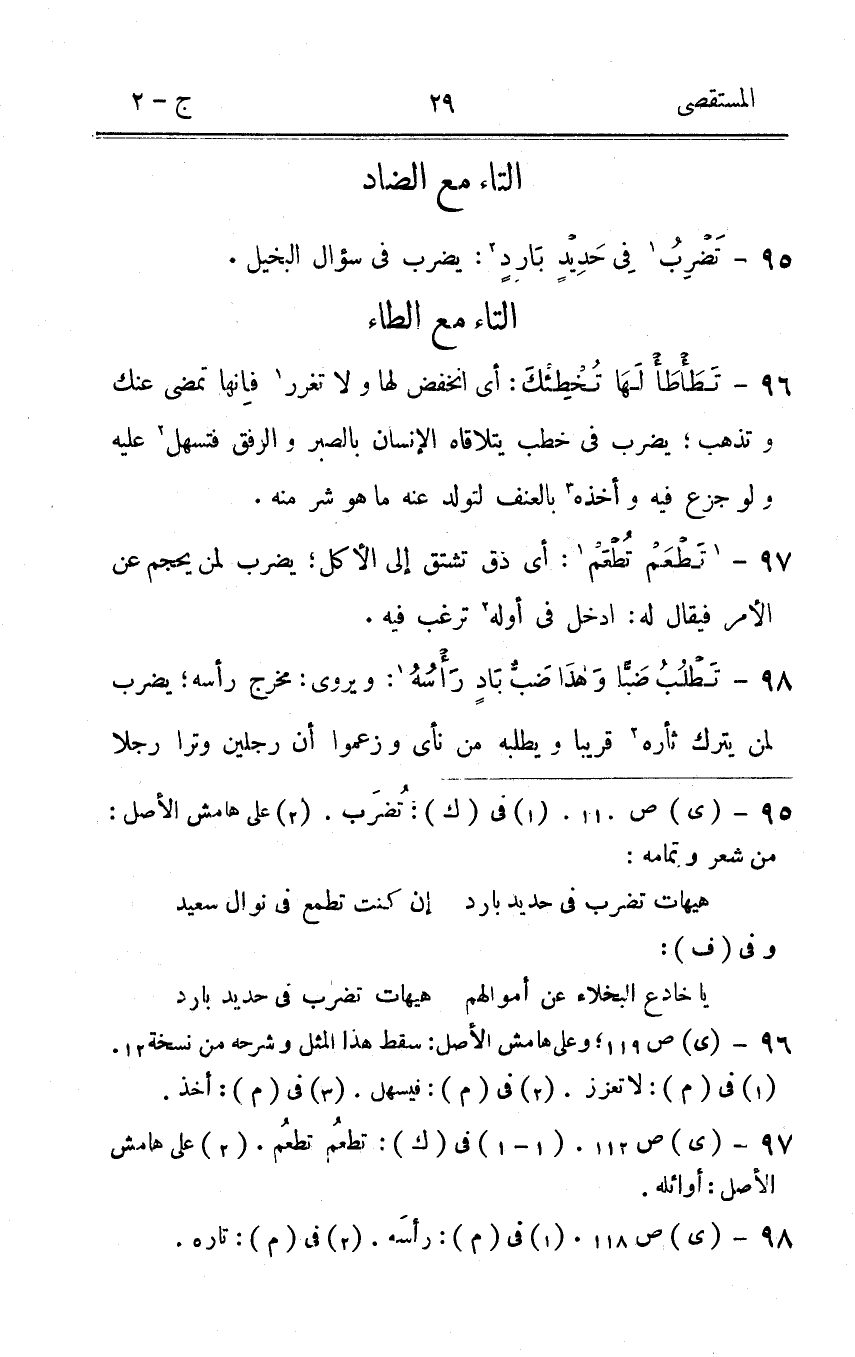 المستقصى ٢٩ ج – ٢
التاء مع الضاد
٩٥ – تَضْرِبُ١ فِى حَدِيْدٍ بَارِدٍ٢: يضرب فى سؤال البخيل .
التاء مع الطاء
٩٦ – تَطَأْطَأْ لَهَا تُخْطِئْكَ: أى انخفض لها و لا تغرر١ فإنها تمضى عنك
و تذهب؛ يضرب فى خطب يتلاقاه الإنسان بالصبر و الرفق فتسهل٢ عليه
و لو جزع فيه و أخذه٣ بالعنف لتولد عنه ما هو شر منه .
٩٧ – ١تَطْعَمْ تُطْعَمْ١: أى ذق تشتق إلى الأكل؛ يضرب لمن يحجم عن
الأمر فيقال له: ادخل فى أوله٢ ترغب فيه .
٩٨ – تَطْلُبُ ضَبًّا وَهٰذَا ضَبٌّ بَادٍ رَأْسُهُ١: و يروى: مخرج رأسه؛ يضرب
لمن يترك ثأره٢ قريبا و يطلبه من نأى و زعموا أن رجلين وترا رجلا
٩٥ – (ى) ص ١١٠ . (١) فى (ك): تُضرَب . (٢) على هامش الأصل:
من شعر و تمامه:
هيهات تضرب فى حديد بارد إن كنت تطمع فى نوال سعيد
و فى (ف):
يا خادع البخلاء عن أموالهم هيهات تضرب فى حديد بارد
٩٦ – (ى) ص ١١٩؛ و على هامش الأصل: سقط هذا المثل و شرحه من نسخة ١٢.
(١) فى (م): لا تعزز . (٢) فى (م): فيسهل . (٣) فى (م): أخذ .
٩٧ – (ى) ص ١١٢ . (١–١) فى (ك): تطعمُ تطعُم . (٢) على هامش
الأصل: أوائله .
٩٨ – (ى) ص ١١٨ . (١) فى (م): رأسَه . (٢) فى (م): تاره .